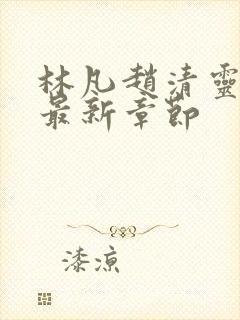 林凡趙清靈
最新章節
漆涼